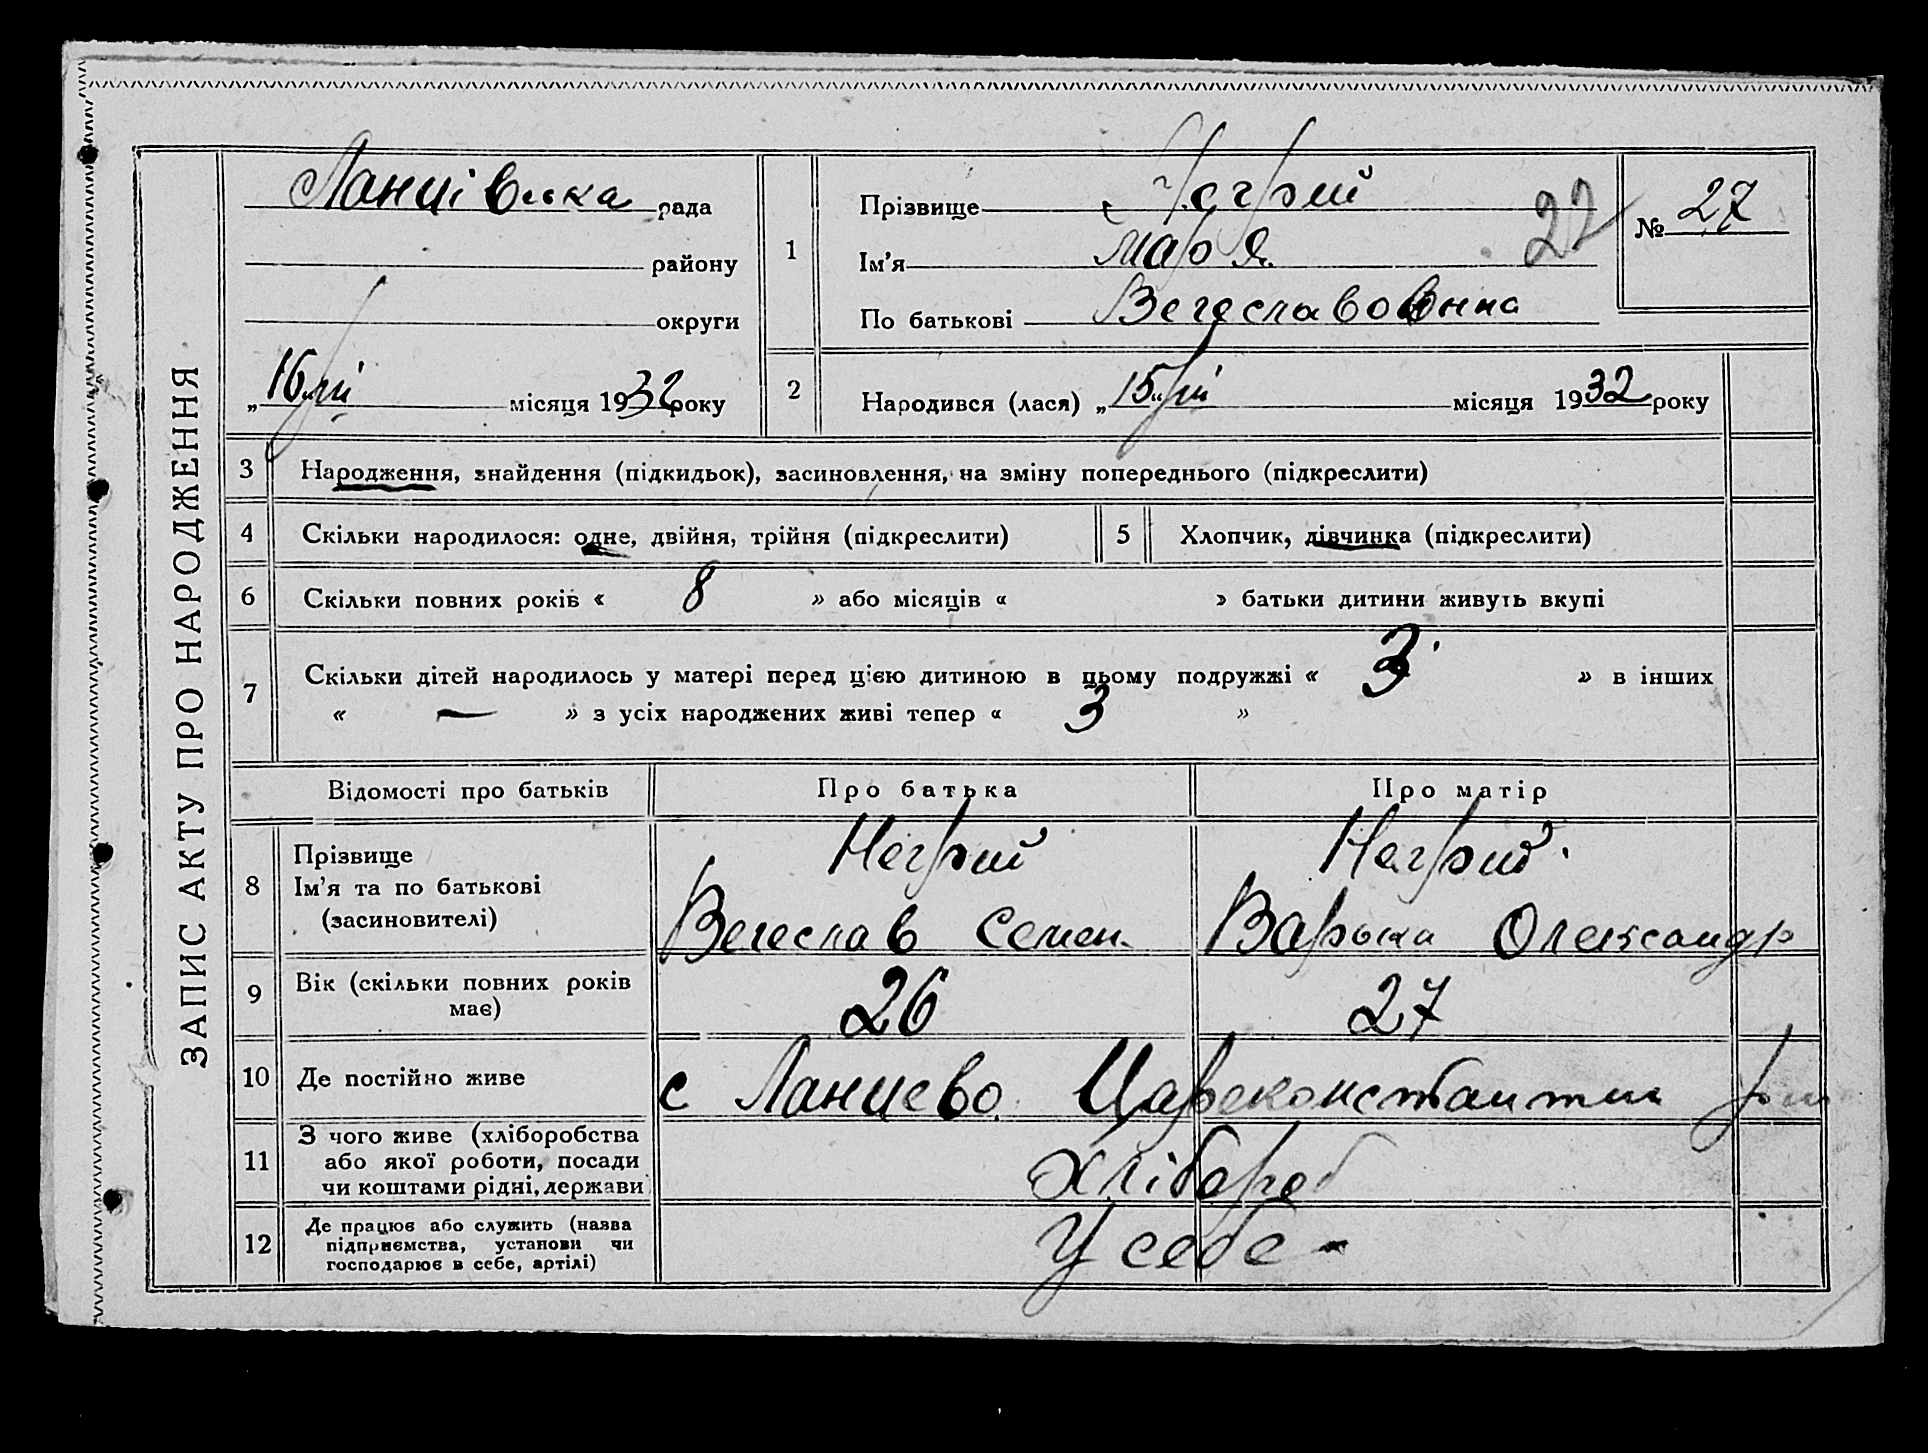 ЗАПИС АКТУ ПРО НАРОДЖЕННЯ
Ланцівська рада
району
округи
„16 місяця 1932 року
1
Прізвище Негрий
Ім'я Марія
По батькові Вегеславовна
22
№ 27
2
Народився (лася) „15 місяця 1932 року
3 Народження, знайдення (підкидьок), засиновлення, на зміну попереднього (підкреслити)
4 Скільки народилося: одне, двійня, трійня (підкреслити)
5 Хлопчик, дівчинка (підкреслити)
6 Скільки повних років « 8 » або місяців « » батьки дитини живуть вкупі
7 Скільки дітей народилось у матері перед цією дитиною в цьому подружжі « 3 » в інших
« — » з усіх народжених живі тепер « 3 »
Відомості про батьків
Про батька
Про матір
8
Прізвище
Ім'я та по батькові
(засиновителі)
Негрий
Вегеслав Семен.
Негрий
Варька Олександр
9
Вік (скільки повних років
має)
26
27
10 Де постійно живе
с Ланцево Цареконстантин
11
З чого живе (хліборобства
або якої роботи, посади
чи коштами рідні, держави
хлібороб
12
Де працює або служить (назва
підприємства, установи чи
господарює в себе, артілі)
У себе -